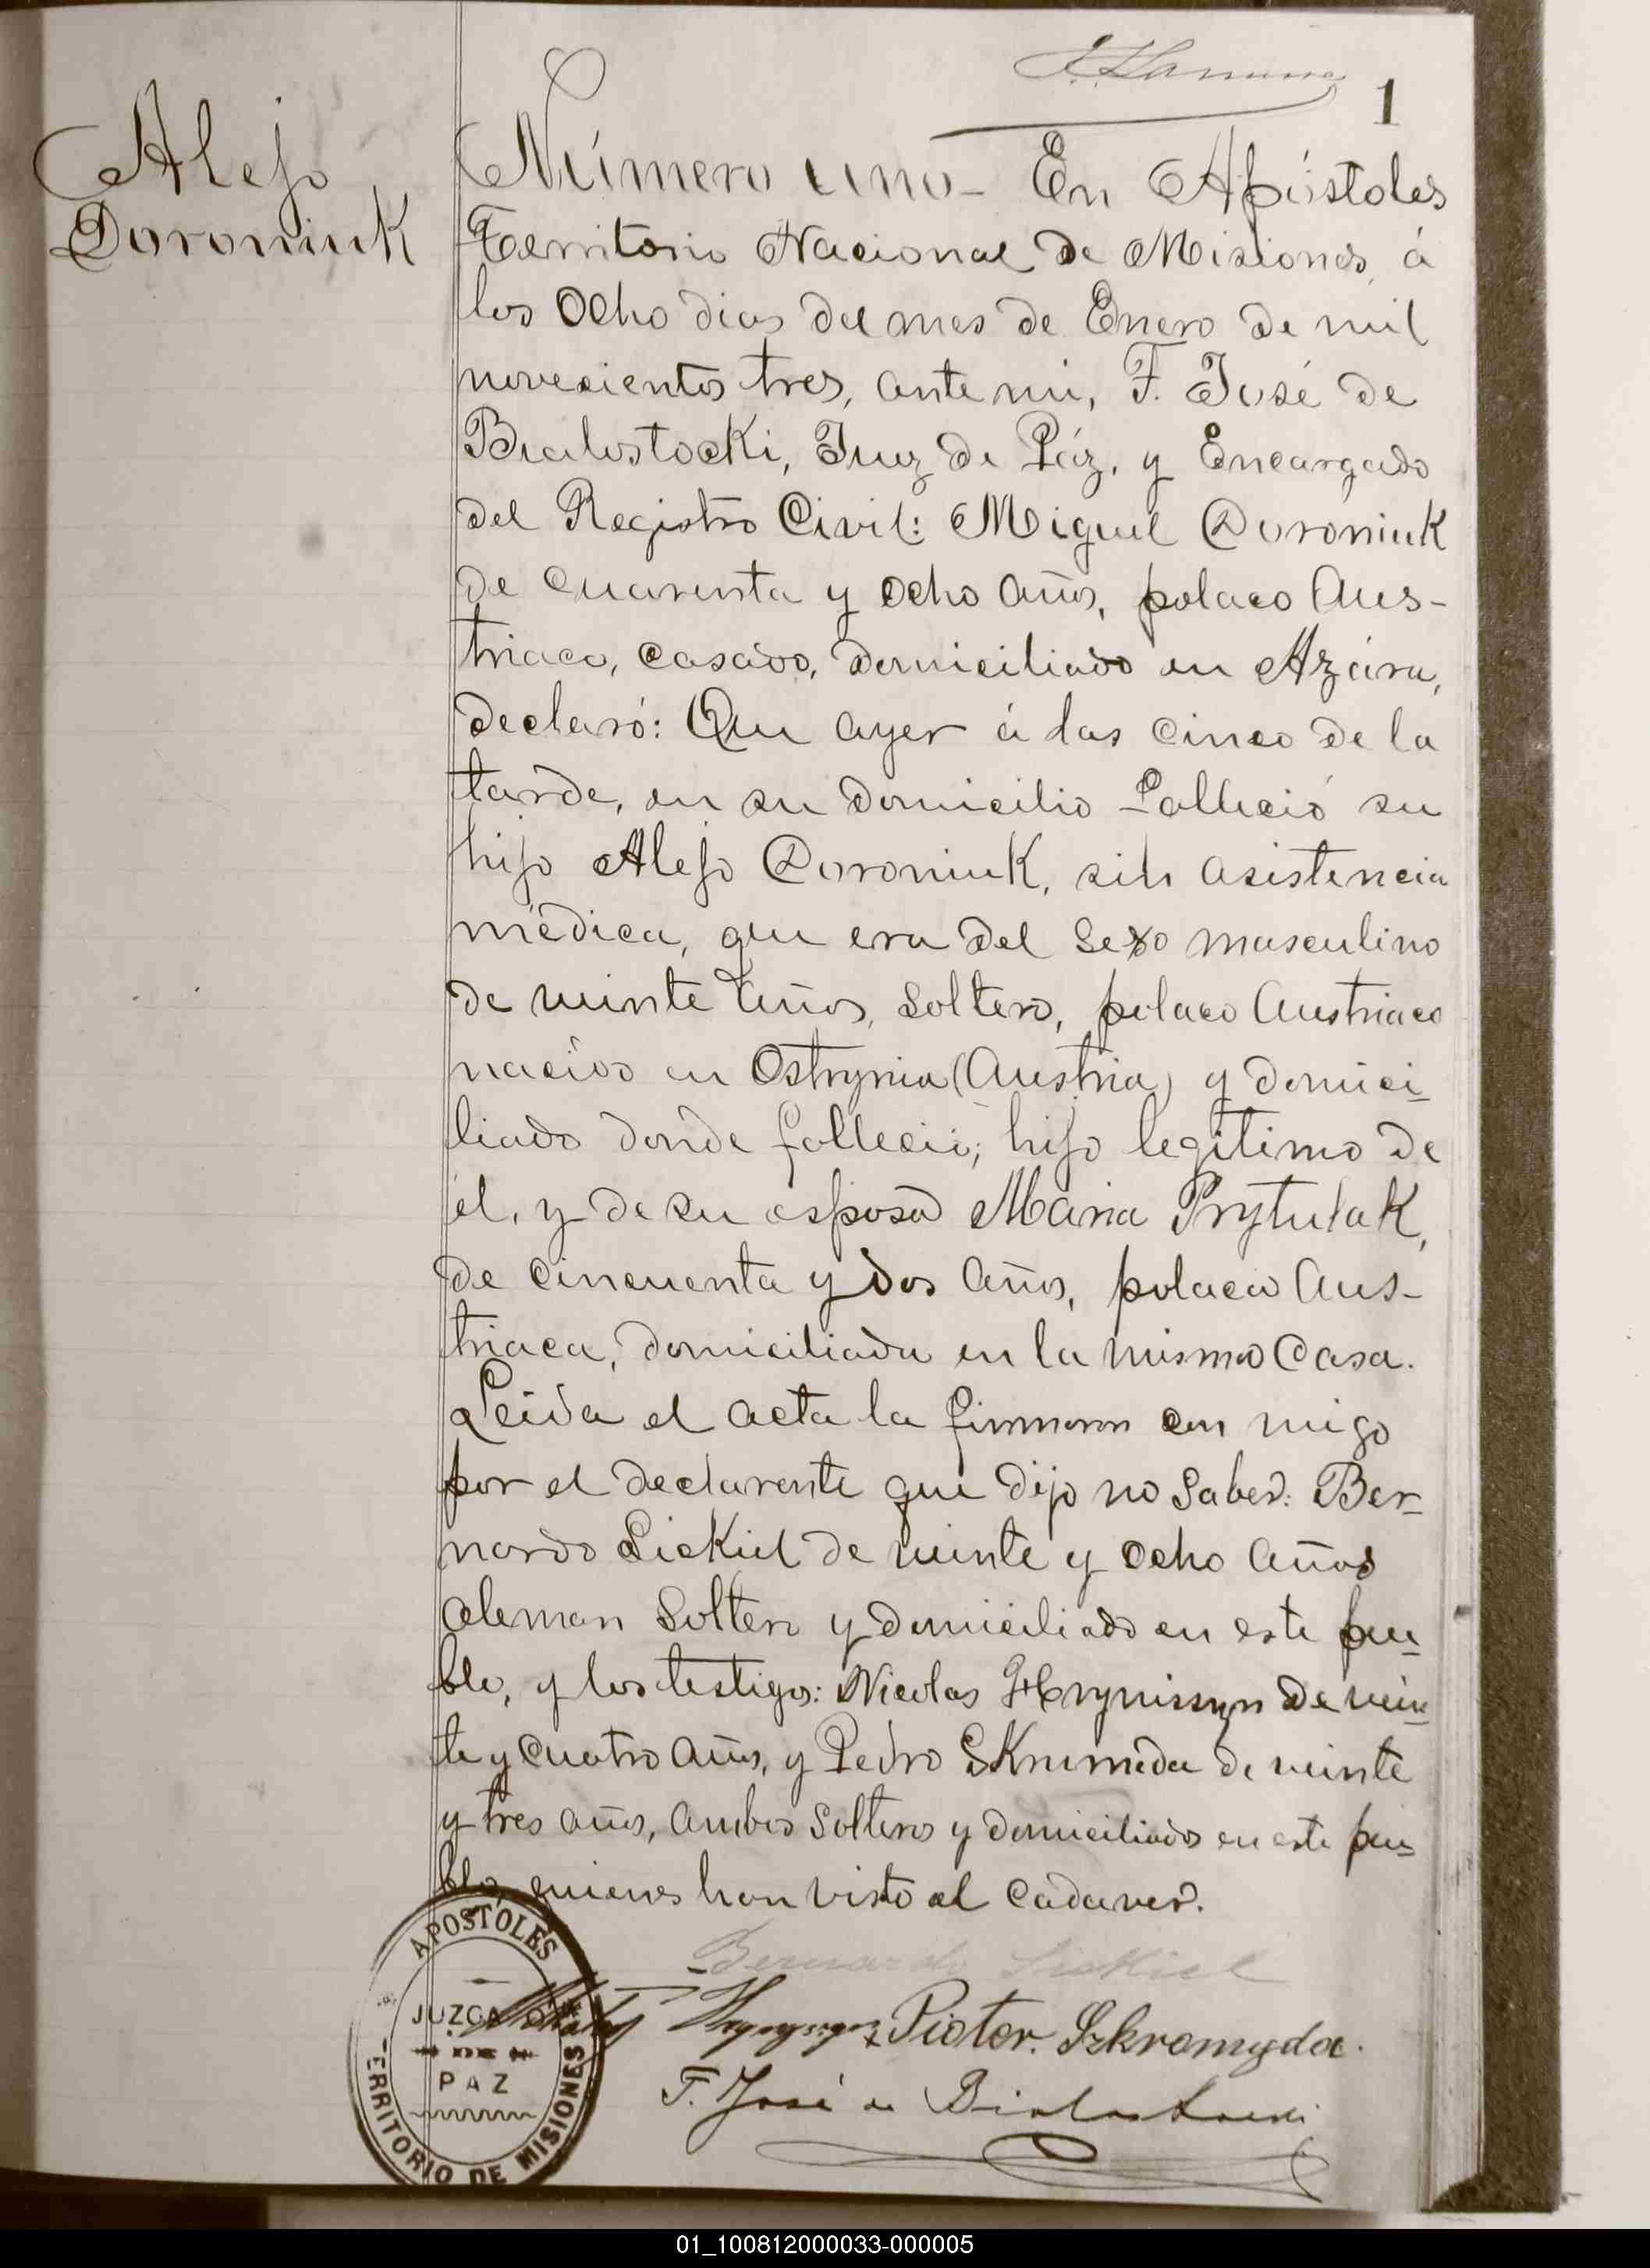 1
Alejo
Doroniuk
Número uno - En Apóstoles
Territorio Nacional de Misiones, á
los ocho dias del mes de Enero de mil
novecientos tres, ante mi, F. José de
Bialostocki, Juez de Páz, y Encargado
del Registro Civil: Miguel Doroniuk
de cuarenta y ocho años, polaco Aus-
triaco, casado, domiciliado en Azára,
declaró: Que ayer á las cinco de la
tarde, en su domicilio falleció su
hijo Alejo Doroniuk, sin asistencia
médica, que era del sexo masculino
de veinte años, soltero, polaco Austriaco
nacido en Ostrynia (Austria) y domici-
liado donde falleció; hijo legítimo de
él, y de su esposa Maria Prytulak,
de cincuenta y dos años, polaca Aus-
triaca, domiciliada en la misma casa.
Leida el acta la firmaron con migo
por el declarente que dijo no saber: Ber-
nardo Siekiel de veinte y ocho años
aleman soltero y domiciliado en este pue-
blo, y los testigos: Nicolas de vein-
te y cuatro años, y Pedro Skrumeda de veinte
y tres años, ambos solteros y domiciliados en este pue-
blo, quienes han visto al cadaver.
Bernardo Siekiel
Piotor. Szkromyda.
F. José de Bialostocki
APOSTOLES
JUZGADO
DE
PAZ
TERRITORIO DE MISIONES
01_100812000033-000005